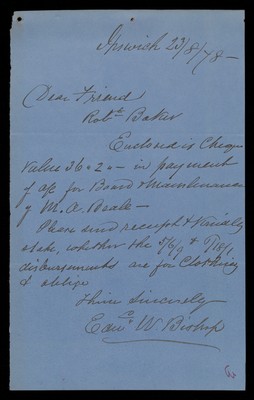 Ipswich 23/8/78 —
Dear Friend
Robt Baker
Enclosed is Cheque
value 36.2.- in payment
of a/c for Board & Maintenance
of M. A. Beale —
Please send receipt & kindly
state, whether the
disbursements are for Clothing
& oblige
Thine Sincerely
W. Bishop